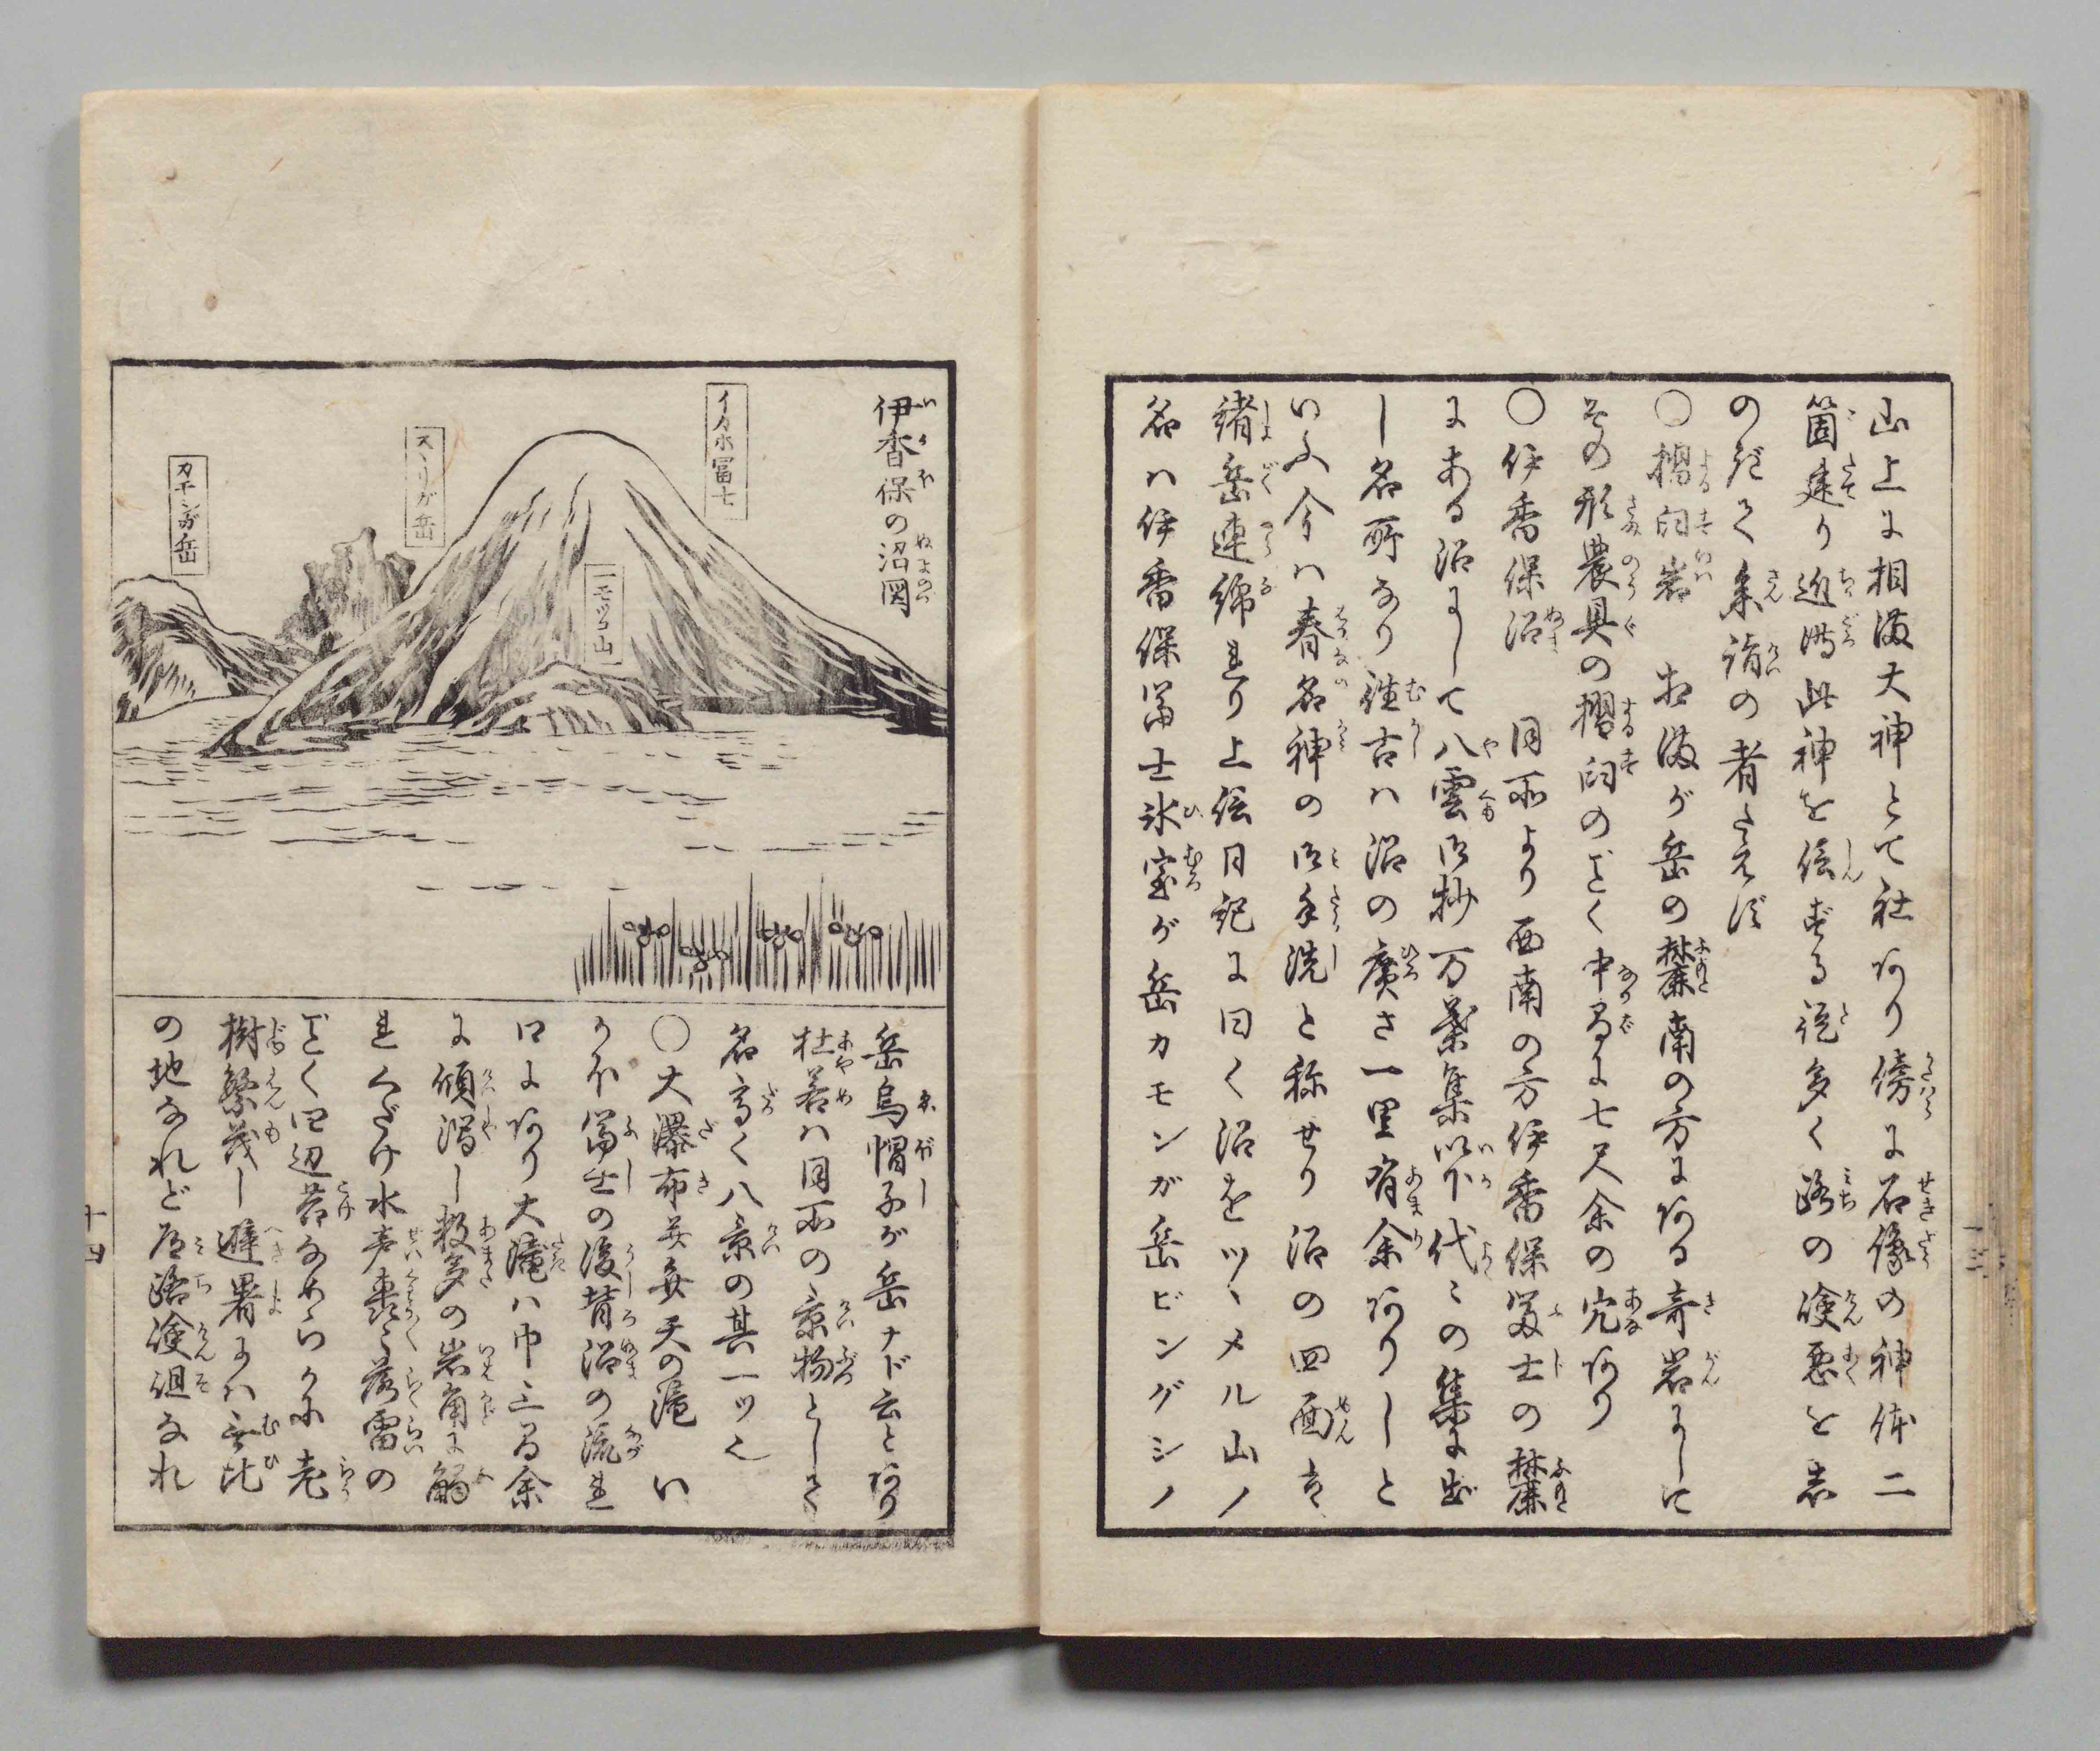 山上に相満大神とて社あり傍に石像の神体二
箇建り近郷此神を信ずる説多く路の険悪を
のぼりて参詣の者たえず
〇摺臼岩　相満が岳の麓南の方にある奇岩にして
その形農具の摺臼のごとく中央に七尺余の穴あり
〇伊香保沼　同所より西南の方伊香保富士の麓
にある沼にして八雲御抄万葉集以下代々の集に出
し名所なり往古ハ沼の廣さ一里有余ありしと
いふ今ハ春名神の御手洗と称せり沼の四面は
諸岳連綿たり上信日記に曰く沼をツヽメル山ノ
名ハ伊香保富士氷室が岳カモンガ岳ビングシノ
伊香保の沼図
イカホ冨士
スヽリガ岳
カモンガ岳
一モッコ山
岳烏帽子が岳ナド云とあり
杜若ハ同所の景物として
名高く八景の其一ツ也
〇大瀑布並弁天の滝　い
かほ富士の後背沼の流れ
口にあり大滝ハ巾三間余
に傾瀉し数多の岩角に觸
れくだけ水声轟々落雷の
ごとく四辺苔なめらかに老
樹繁茂し避暑にハ無比
の地なれど道路険岨なれ
十四